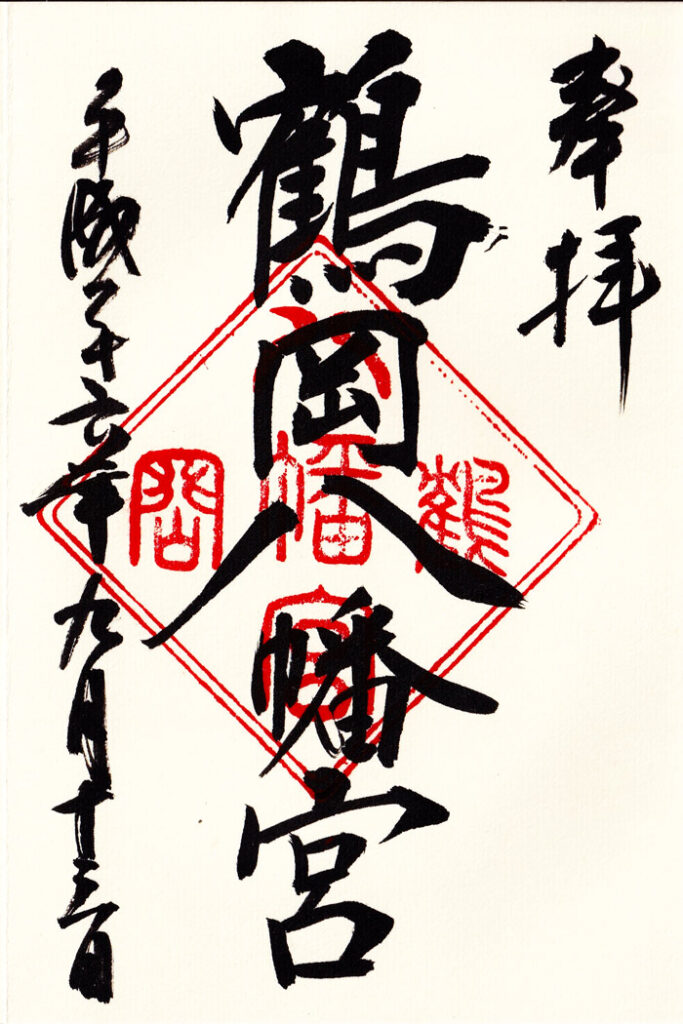 奉拝
鶴岡八幡宮
平成二十六年九月十三日
鶴
八幡宮
岡